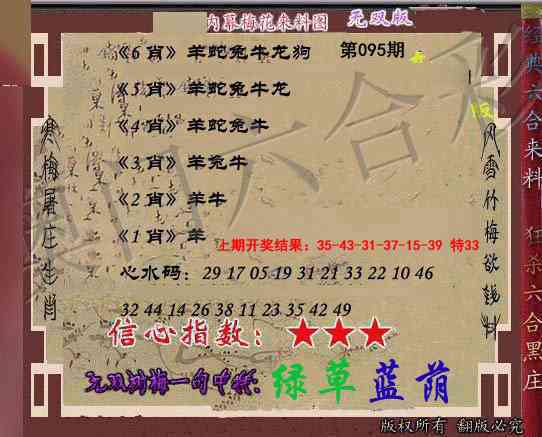 内幕梅花来料图 无双版
《6 肖》羊蛇兔牛龙狗 第095期
《5 肖》羊蛇兔牛龙
《4 肖》羊蛇兔牛
《3 肖》羊兔牛
《2 肖》羊牛
《1 肖》羊
上期开奖结果：35-43-31-37-15-39 特33
心水码：29 17 05 19 31 21 33 22 10 46
32 44 14 26 38 11 23 35 42 49
信心指数：★★★
一句中特：绿草蓝荫
寒梅屠庄生肖
风雪竹梅欲钱料
经典六合来料 狂杀六合黑庄
澳门六合彩
版权所有 翻版必究